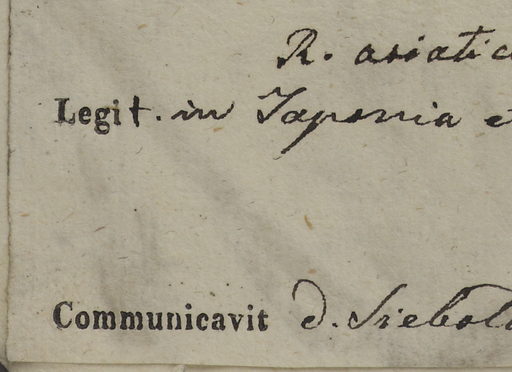 R. asiatic
Legit. in Japonia e
Communicavit d. Siebold